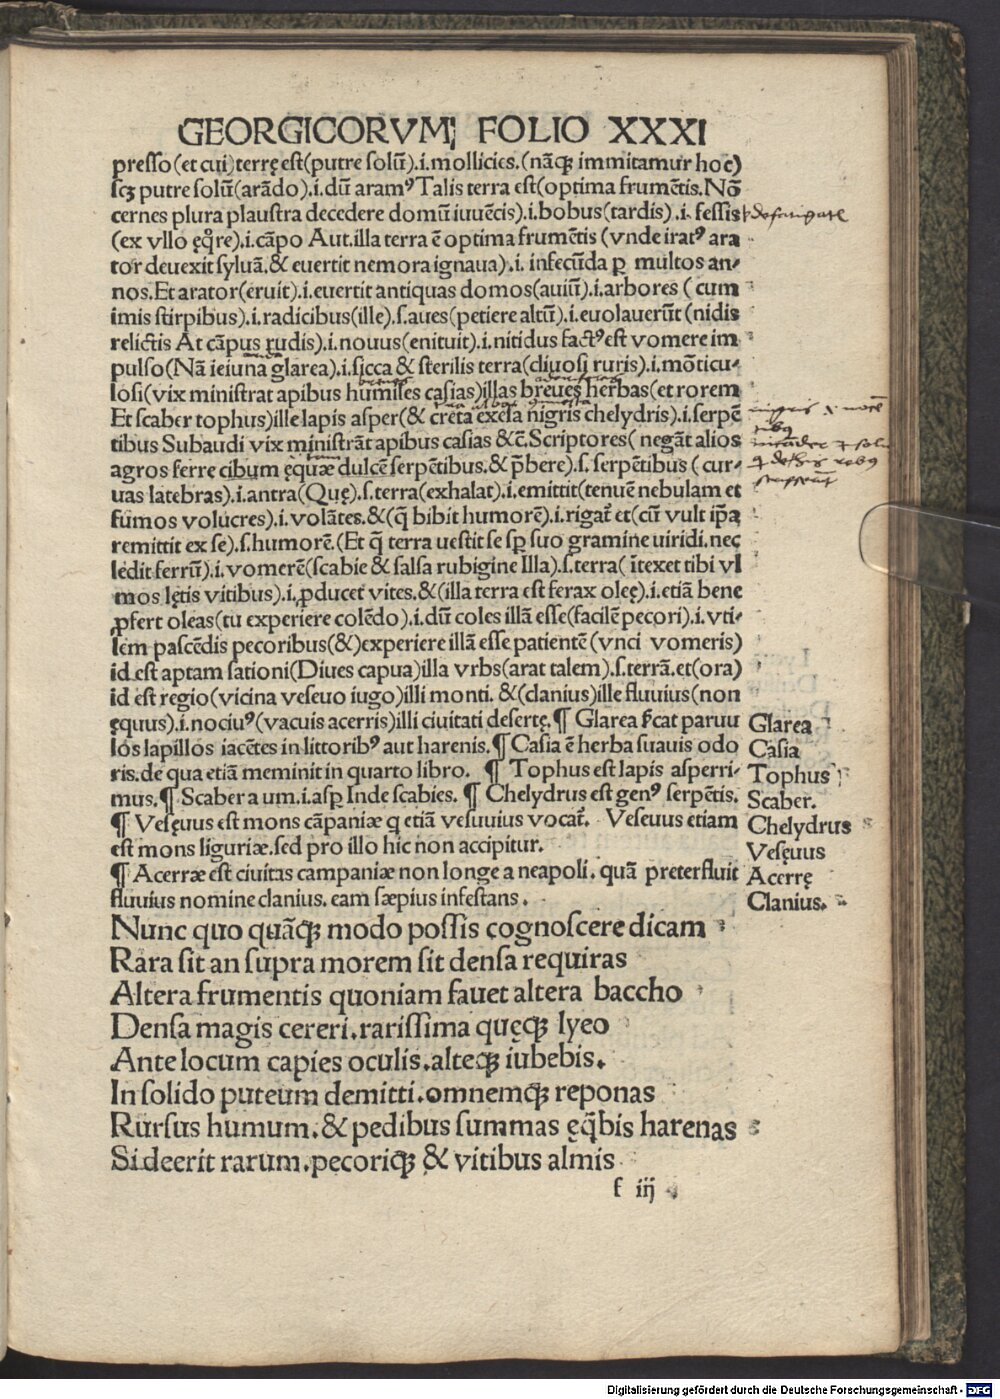 GEORGICORVM, FOLIO XXXI
presso (et cui) terrę est (putre solū) .i. mollicies. (nāq immitamur hoc)
scꝫ putre solū (arādo) .i. dū aramꝰ Talis terra est (optima frumētis. Nō
cernes plura plaustra decedere domū iuuēcis) .i. bobus (tardis) .i. fessis
(ex vllo ęq̄re) .i. cāpo Aut. illa terra ē optima frumētis (vnde iratꝰ ara
tor deuexit syluā. & euertit nemora ignaua) .i. infecūda p multos an-
nos. Et arator (eruit) .i. euertit antiquas domos (auiū) .i. arbores (cum
imis stirpibus) .i. radicibus (ille) .s. aues (petiere altū) .i. euolauerūt (nidis
relictis At cāpus rudis) .i. nouus (enituit) .i. nitidus factꝰ est vomere im
pulso (Nā ieiuna glarea) .i. sicca & sterilis terra (cliuosi ruris) .i. mōticu-
losi (vix ministrat apibus humiles casias) illas breues herbas (et rorem
Et scaber tophus) ille lapis asper (& creta exesa nigris chelydris) .i. serpē
tibus Subaudi vix ministrāt apibus casias &c̄. Scriptores (negāt alios
agros ferre cibum ęquæ dulcē serpētibus. & p̄bere) .s. serpētibus (cur-
uas latebras) .i. antra (Quę) .s. terra (exhalat) .i. emittit (tenuē nebulam et
fumos volucres) .i. volātes. & (q̄ bibit humorē) .i. rigat̄ et (cū vult ip̄a
remittit ex se) .s. humorē. (Et q̄ terra uestit se sp̱ suo gramine uiridi. nec
lędit ferrū) .i. vomerē (scabie & salsa rubigine Illa) .s. terra (ītexet tibi vl
mos lętis vitibus) .i. ꝓducet vites. & (illa terra est ferax oleę) .i. etiā bene
ꝓfert oleas (tu experiere colēdo) .i. dū coles illā esse (facilē pecori) .i. vti-
lem pascēdis pecoribus (&) experiere illā esse patientē (vnci vomeris)
id est aptam sationi (Diues capua) illa vrbs (arat talem) .s. terrā. et (ora)
id est regio (vicina veseuo iugo) illi monti. & (clanius) ille fluuius (non
ęquus) .i. nociuꝰ (vacuis acerris) illi ciuitati desertę. ¶ Glarea s̄cat paruu
los lapillos iacētes in littoribꝰ aut harenis. ¶ Casia ē herba suauis odo
ris. de qua etiā meminit in quarto libro. ¶ Tophus est lapis asperri-
mus. ¶ Scaber a um. i. asp̱ Inde scabies. ¶ Chelydrus est genꝰ serpētis.
¶ Vesęuus est mons cāpaniæ q etiā vesuuius vocat̄. Veseuus etiam
est mons liguriæ. sed pro illo hic non accipitur.
¶ Acerræ est ciuitas campaniæ non longe a neapoli. quā preterfluit
fluuius nomine clanius. eam sæpius infestans.
Glarea
Casia
Tophus
Scaber.
Chelydrus
Vesęuus
Acerrę
Clanius.
Nunc quo quāq modo possis cognoscere dicam
Rara sit an supra morem sit densa requiras
Altera frumentis quoniam fauet altera baccho
Densa magis cereri. rarissima quęq lyeo
Ante locum capies oculis. alteq iubebis.
In solido puteum demitti. omnemq reponas
Rursus humum. & pedibus summas ęq̄bis harenas
Si deerit rarum. pecoriq & vitibus almis
f iij
Digitalisierung gefördert durch die Deutsche Forschungsgemeinschaft - DFG